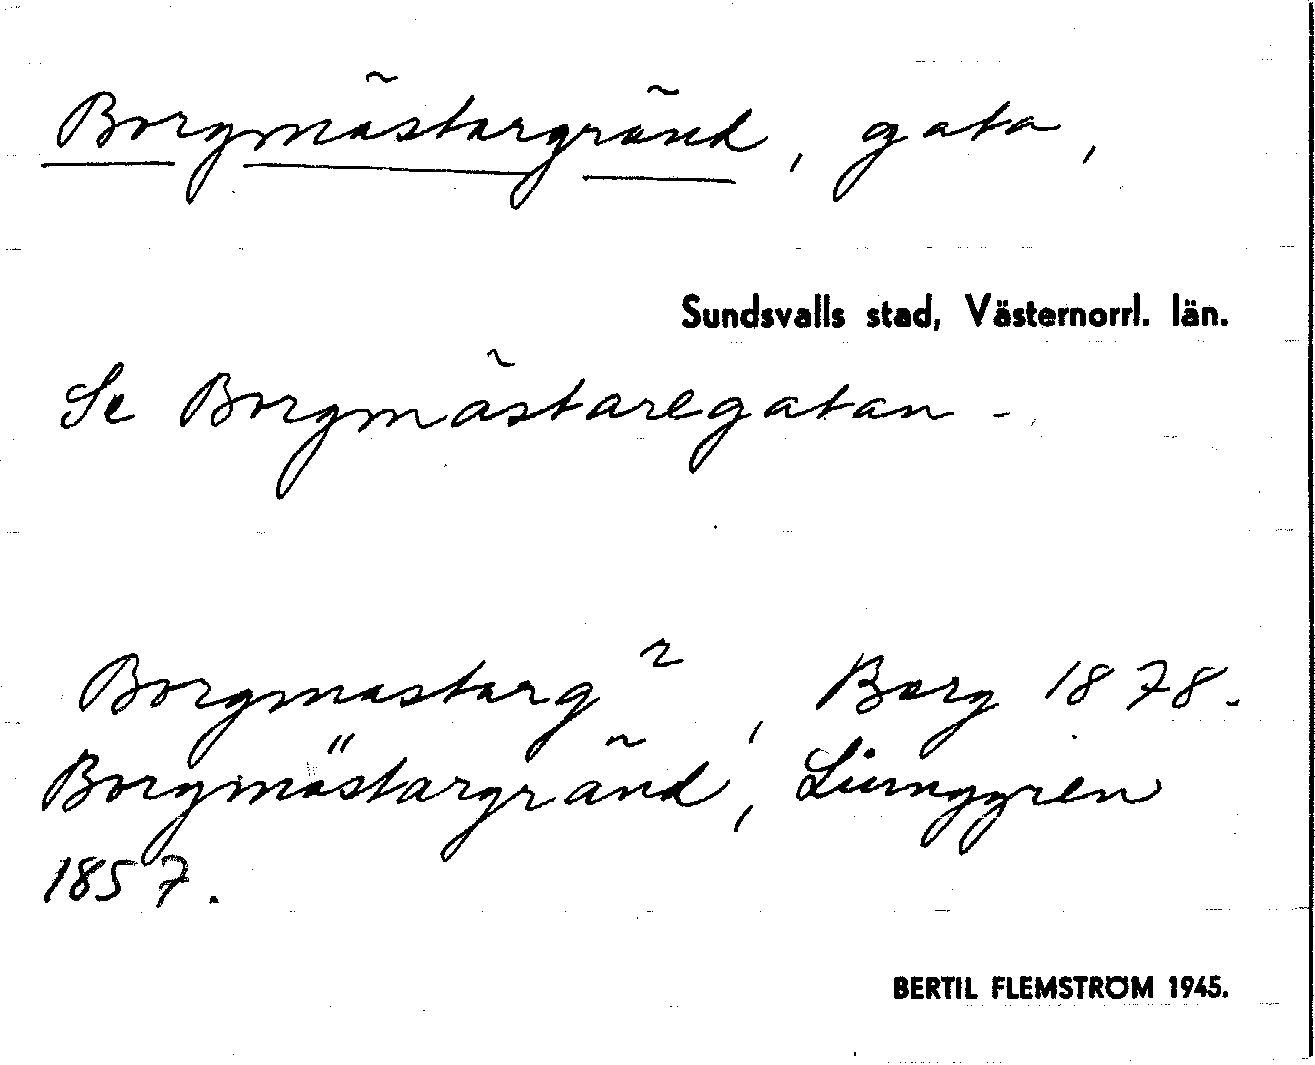 Borgmästargränd, gata,
Sundsvalls stad, Västernorrl. län.
Se Borgmästaregatan -
Borgmastarg², Borg 1878.
Borgmästargränd, Ljunggren
1857.
BERTIL FLEMSTRÖM 1945.